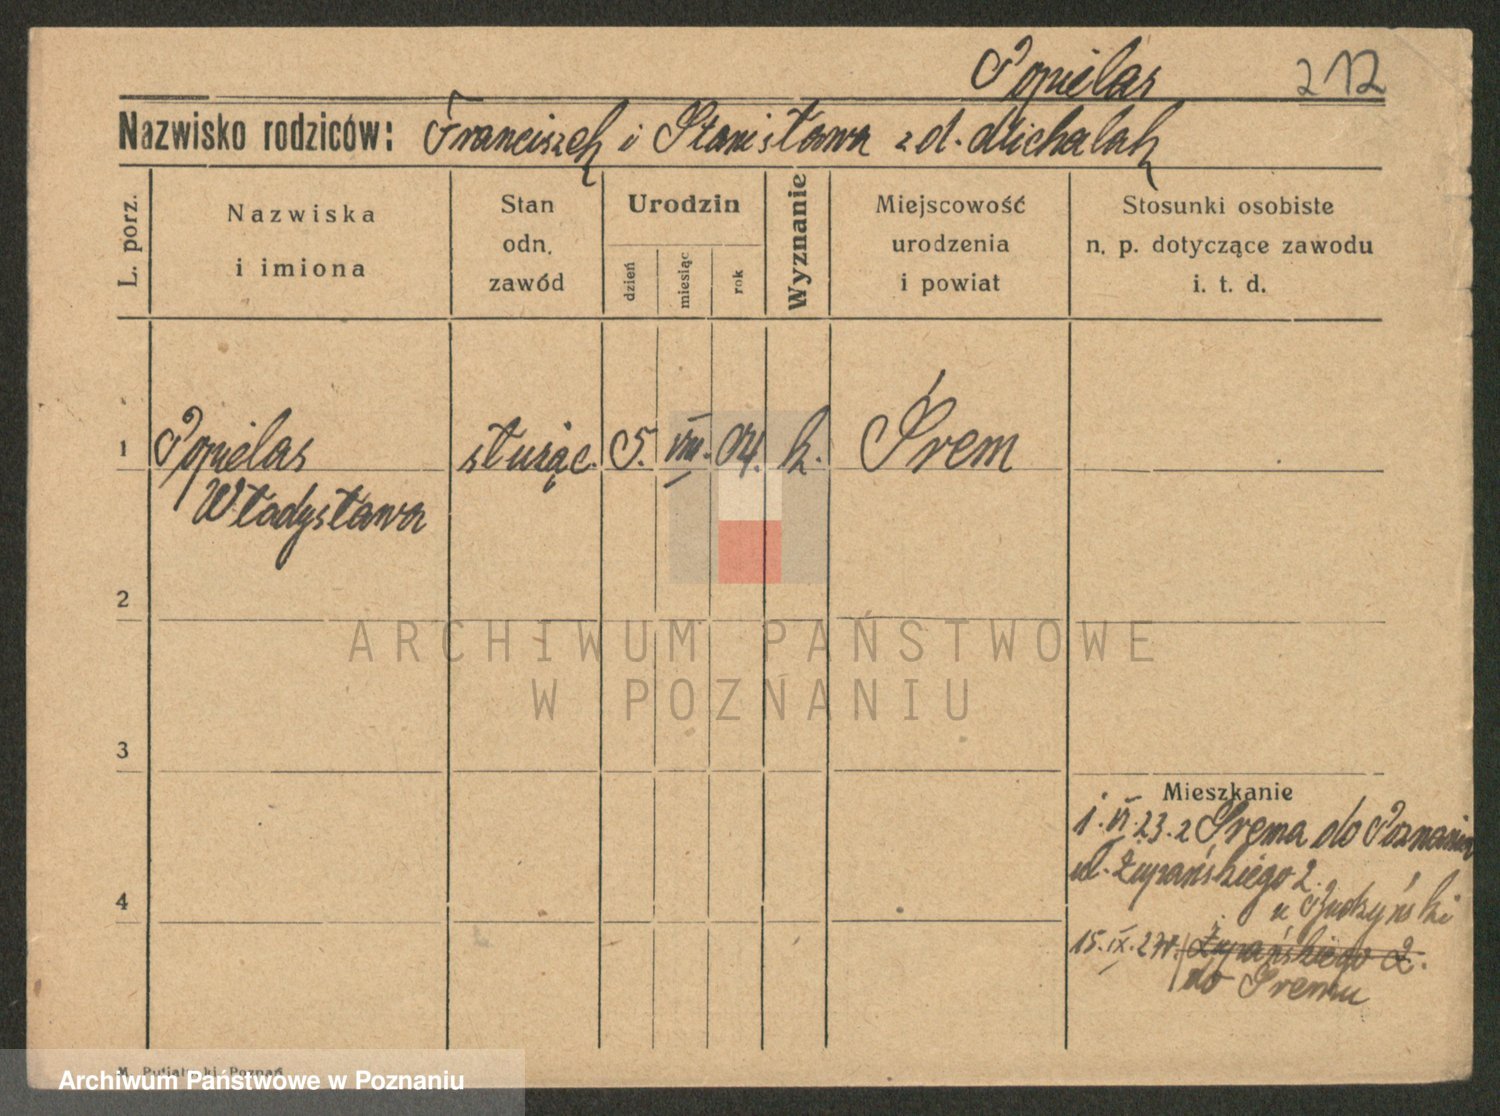 Popielas 212
Nazwisko rodziców: Franciszek i Stanisława z d. Michalak
L. porz.
Nazwiska
i imiona
Stan
odn.
zawód
Urodzin
dzień
miesiąc
rok
Wyznanie
Miejscowość
urodzenia
i powiat
Stosunki osobiste
n. p. dotyczące zawodu
i. t. d.
1 Popielas służąc. 5. VIII. 04. k. Śrem
Władysława
2
ARCHIWUM PAŃSTWOWE
W POZNANIU
3
Mieszkanie
1. VI. 23. z Śrema do Poznania
ul. Żupańskiego 2.
4
u
15. IX. 23 Żupańskiego 2.
do Śremu
Poznań
Archiwum Państwowe w Poznaniu